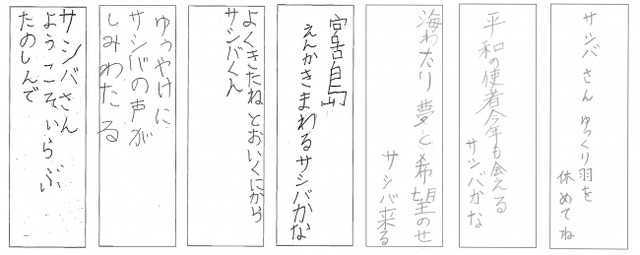 サシバさん ゆっくり羽を
休めてね
平和の使者今年も会える
サシバかな
海わたり 夢と希望のせ
サシバ来る
宮古島
えんかきまわるサシバかな
よくきたねとおいくにから
サシバくん
ゆうやけに
サシバの声が
しみわたる
サシバさん
ようこそいらぶ
たのしんで